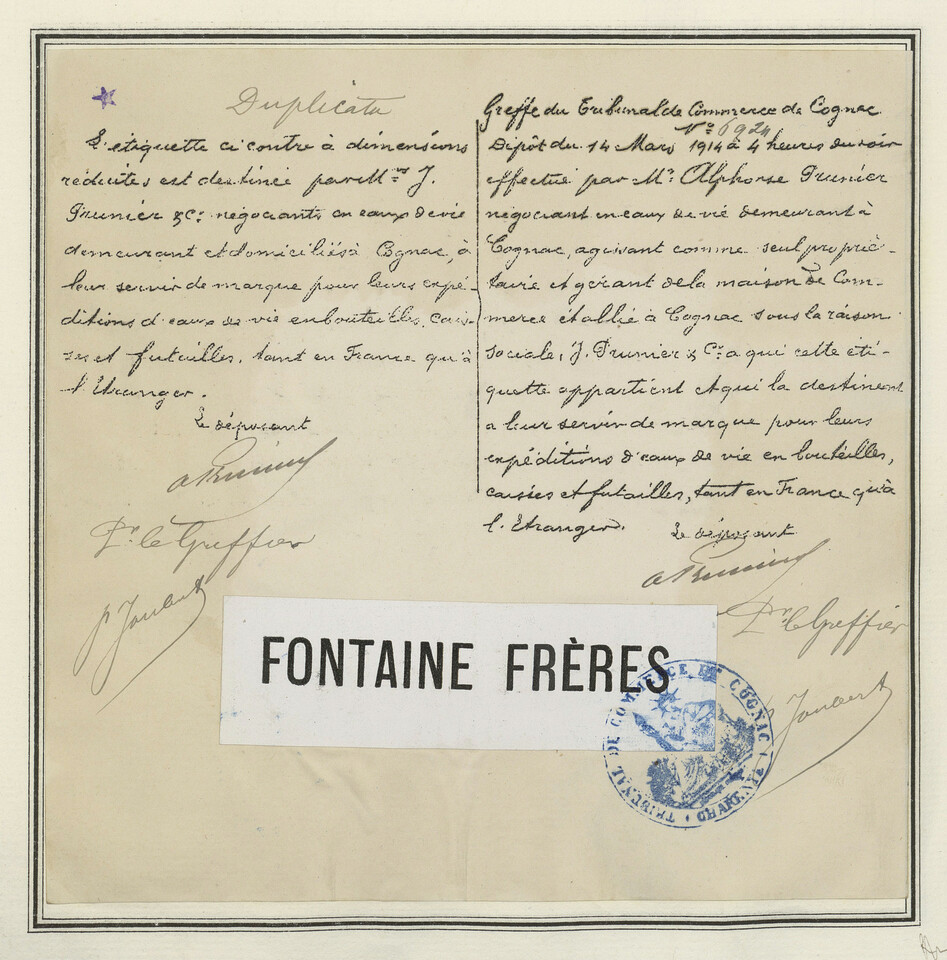 Duplicata
L'étiquette ci contre à dimensions
réduites est destinée par Mrs J.
Prunier & Cie négociants en eaux de vie
demeurant et domiciliés à Cognac, à
leur servir de marque pour leurs expé-
ditions d'eaux de vie en bouteilles, cais-
ses et futailles, tant en France qu'à
l'Etranger.
Le déposant
A Prunier
Pr. le Greffier
Joubert
Greffe du Tribunal de Commerce de Cognac
No 6924
Dépôt du 14 Mars 1914 à 4 heures du soir
effectué par Mr. Alphonse Prunier
négociant en eaux de vie demeurant à
Cognac, agissant comme seul proprié-
taire et gérant de la maison de Com-
merce établie à Cognac sous la raison
sociale, J. Prunier & Cie a qui cette éti-
quette appartient et qui la destinent
a leur servir de marque pour leurs
expéditions d'eaux de vie en bouteilles,
caisses et futailles, tant en France qu'à
l'Etranger.
Le déposant
A Prunier
Pr le Greffier
Joubert
FONTAINE FRÈRES
TRIBUNAL DE COMMERCE DE COGNAC